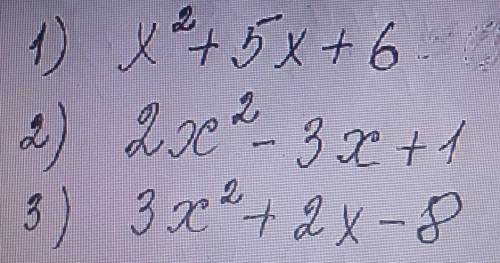 1) x² + 5x + 6
2) 2x² - 3x + 1
3) 3x² + 2x - 8